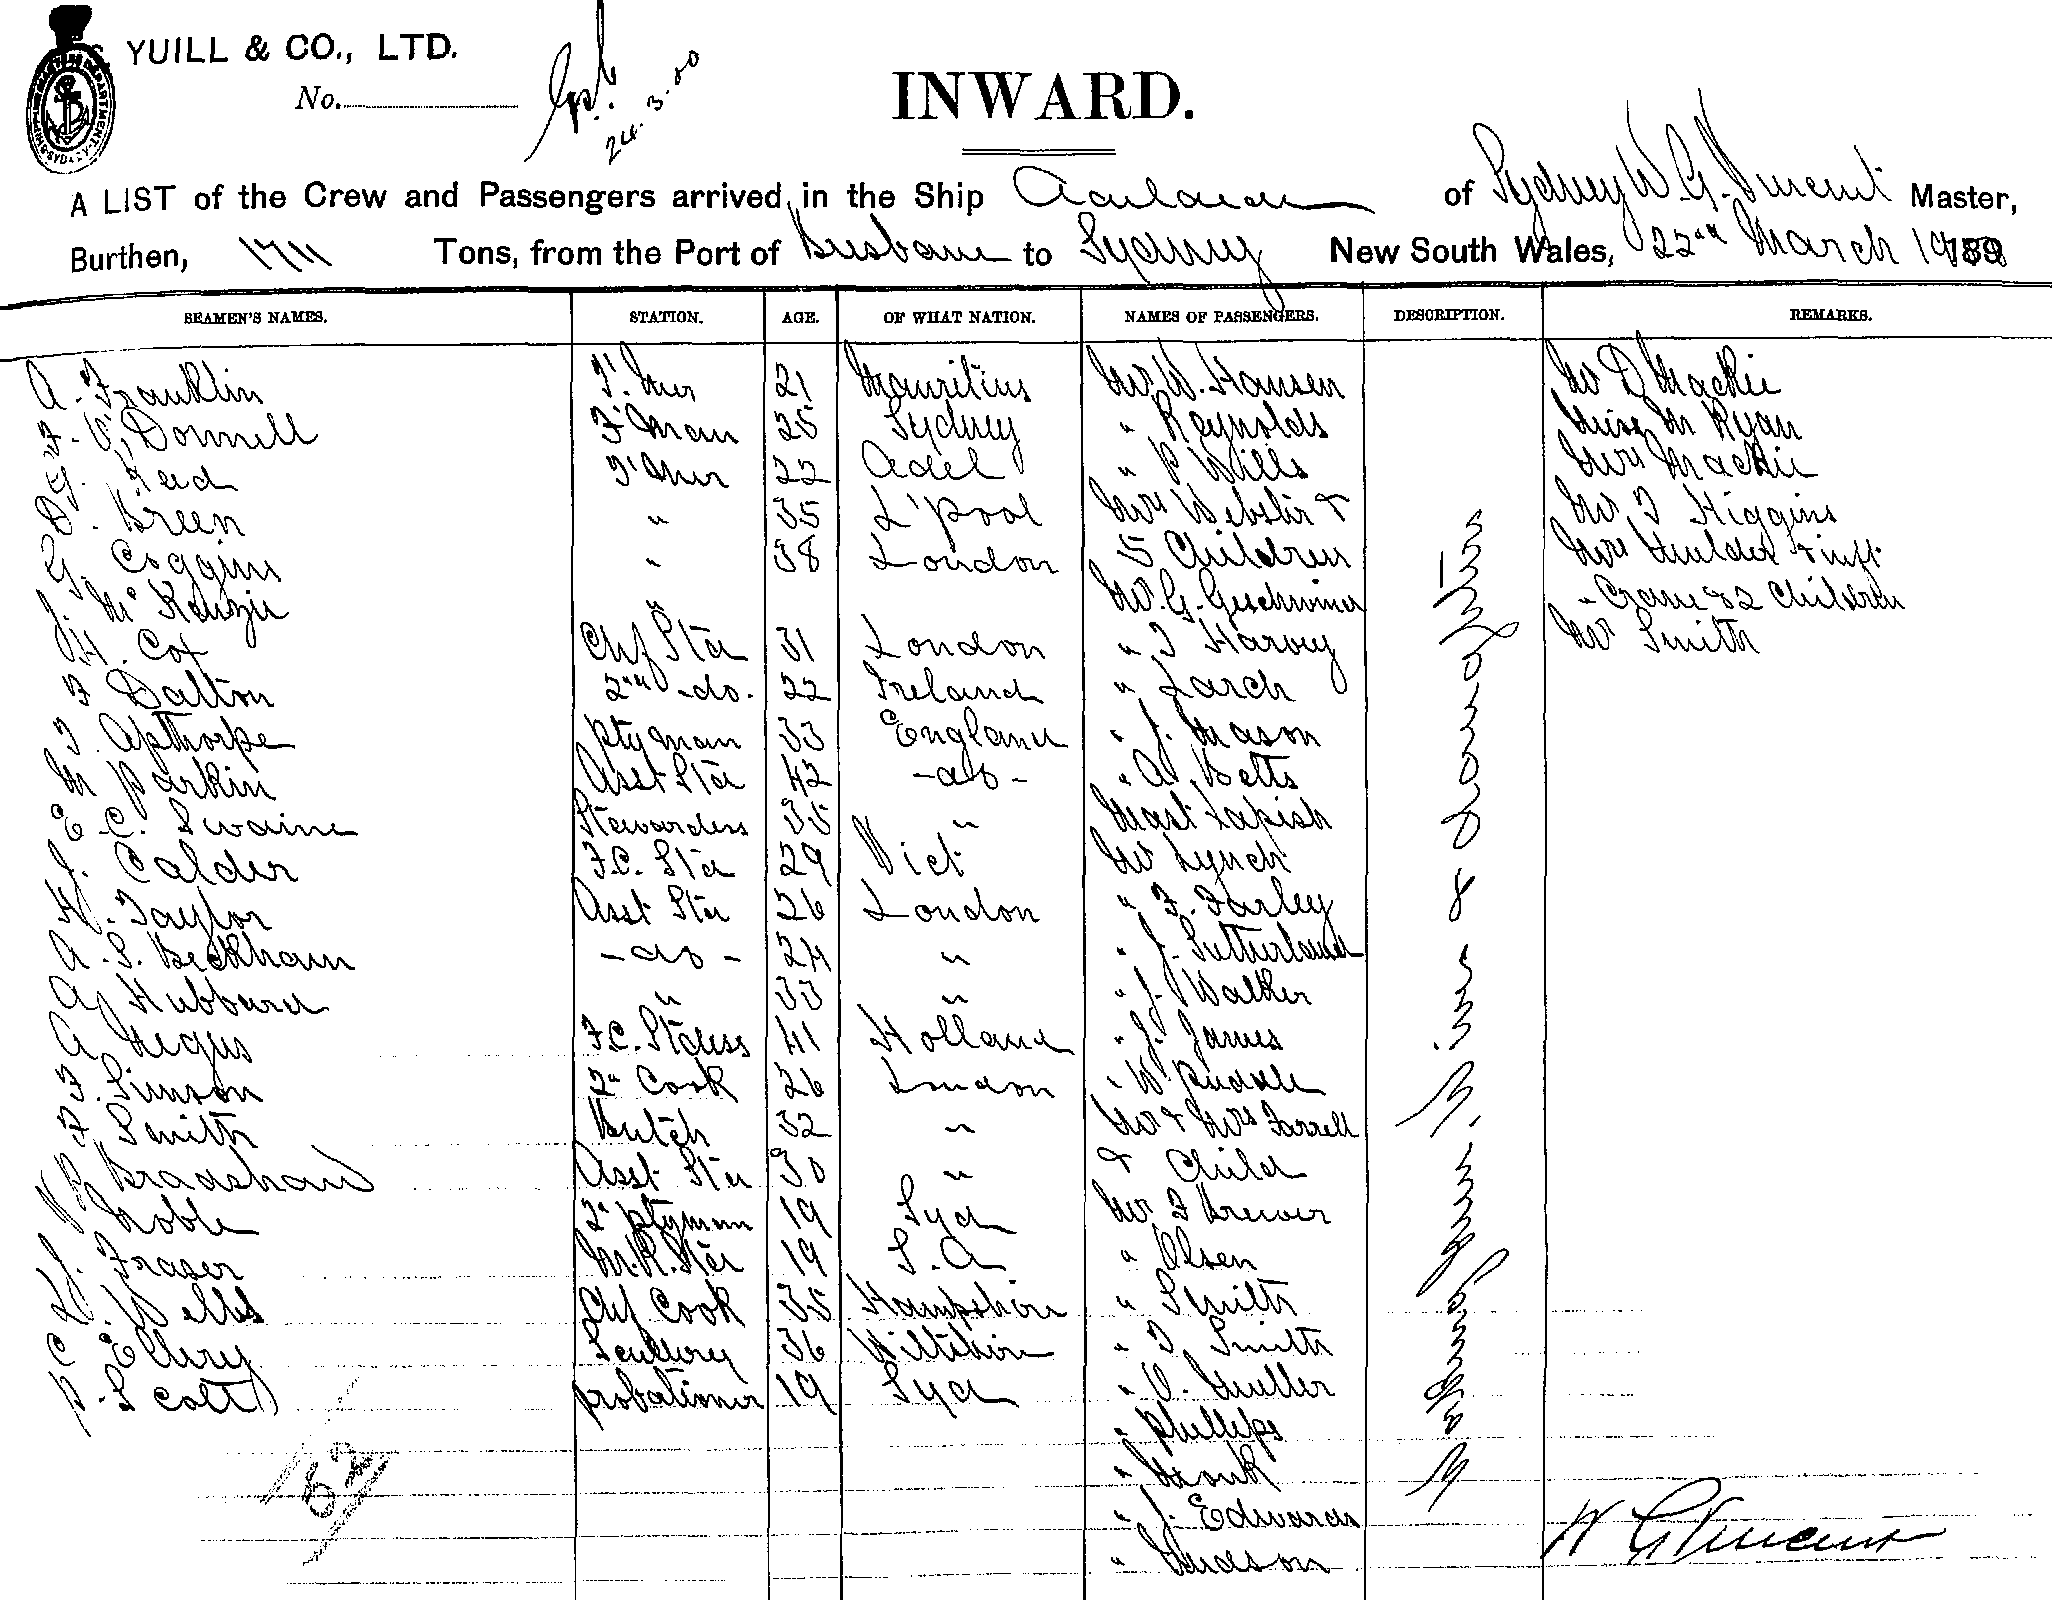 YUILL & CO., LTD.
No.
24.3.00
INWARD.
A LIST of the Crew and Passengers arrived in the Ship of Sydney W. G. Vincent Master,
Burthen, 1711 Tons, from the Port of Brisbane to Sydney New South Wales, 22nd March
SEAMEN'S NAMES. STATION. AGE. OF WHAT NATION. NAMES OF PASSENGERS. DESCRIPTION. REMARKS.
A. Franklin T'mer 21 Mauritius Mr W. Hansen Mr D Mackie
F. O'Donnell F'man 25 Sydney " Reynolds Miss M Ryan
G. Read T'mer 22 Adel " P Wills Mrs Mackie
D. Breen " 35 L'pool Mrs Webster & Mr T Higgins
G. Coggins " 38 London 5 Children Mrs Mulder & inft
J. McKenzie " Mr. G. " Crane & 2 Children
H. Cox Chf Std 31 London " T Harvey Mr Smith
F Dalton 2nd -do. 22 Ireland " Larch
T. Apthorpe Ptyman 33 England " J. Mason
M Parkin Asst Std 42 -do- " A. Betts
E. C. Swaine Stewardess 35 " Mast Lapish
J. Calder F.C. Std 29 Vict Mr Lynch
H. Taylor Asst Std 26 London " F. Farley
A. S. Beckham -do- 24 " " J. Sutherland
A. Hubbard " 33 " " J. Walker
A Negus F.C. Stdess 41 Holland " J. James
F. Simson 2d Cook 26 London " W
F. Smith Butch 32 " Mr & Mrs Farrell
P. Bradshaw Asst Std 30 " & Child
N Noble 2d Ptyman 19 Syd Mr F Brewer
J. Fraser M.R. Std 19 S.A " Olsen
H. Wells Chf Cook 35 Hampshire " Smith
C Ellery Scullery 36 Wiltshire " T. Smith
P. Scott Probationer 19 Syd " O. Muller
" Phillips
" Monk
" J. Edwards
" Hudson
W G Vincent